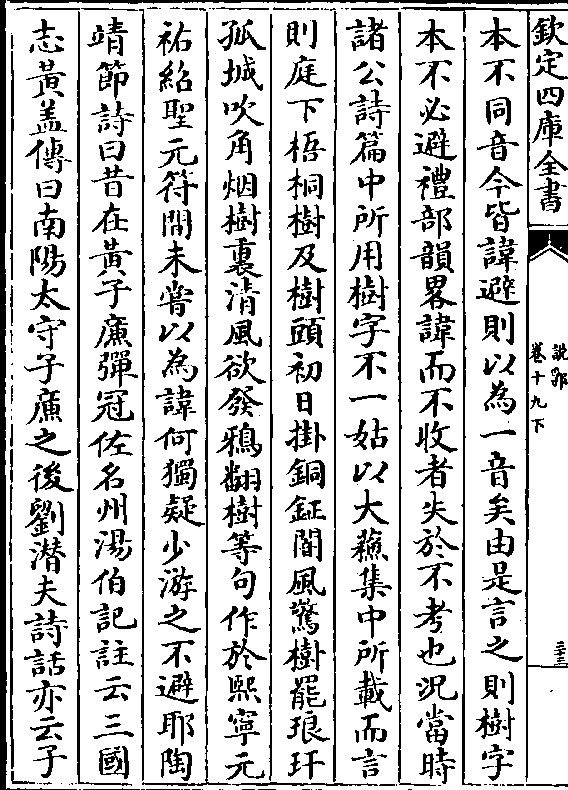 欽定四庫全書
說郛
卷十九下
二十三
本不同音今皆諱避則以為一音矣由是言之則樹字
本不必避禮部韻畧諱而不收者失於不考也況當時
諸公詩篇中所用樹字不一姑以大蘓集中所載而言
則庭下梧桐樹及樹頭初日掛銅鉦閶風驚樹罷琅玕
孤城吹角烟樹裏清風欲發鴉翻樹等句作於熙寧元
祐紹聖元符間未嘗以為諱何獨疑少游之不避耶陶
靖節詩曰昔在黃子廉彈冠佐名州湯伯記註云三國
志黃盖傳曰南陽太守子廉之後劉潛夫詩話亦云子